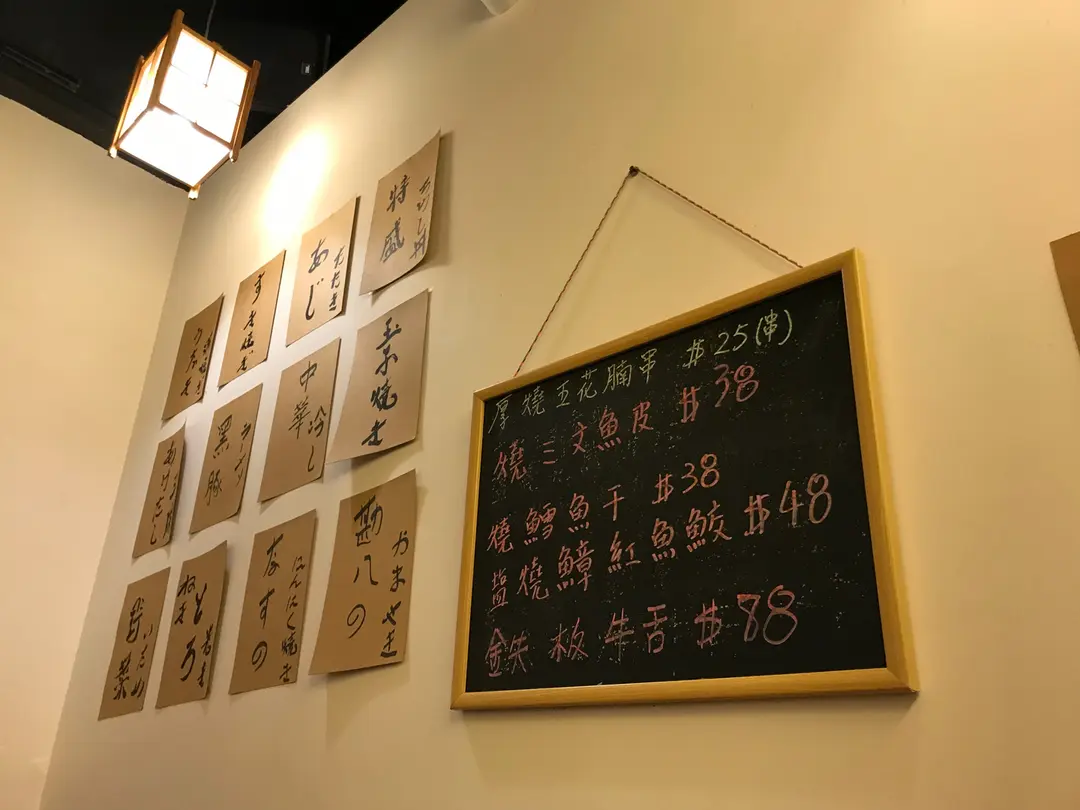 特盛
ちらし丼
あじ
たたき
すき焼き
玉子焼き
中華
冷し
黒豚
勘八の
かまやき
なすの
にんにく焼き
とろ
ねぎ
野菜
いため
厚燒五花腩串 $25(串)
燒三文魚皮 $38
燒鱈魚干 $38
盐燒鱆紅魚鮫 $48
鉄板牛舌 $88